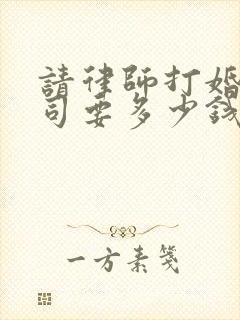 請律師打婚
司要多少錢
一方素箋